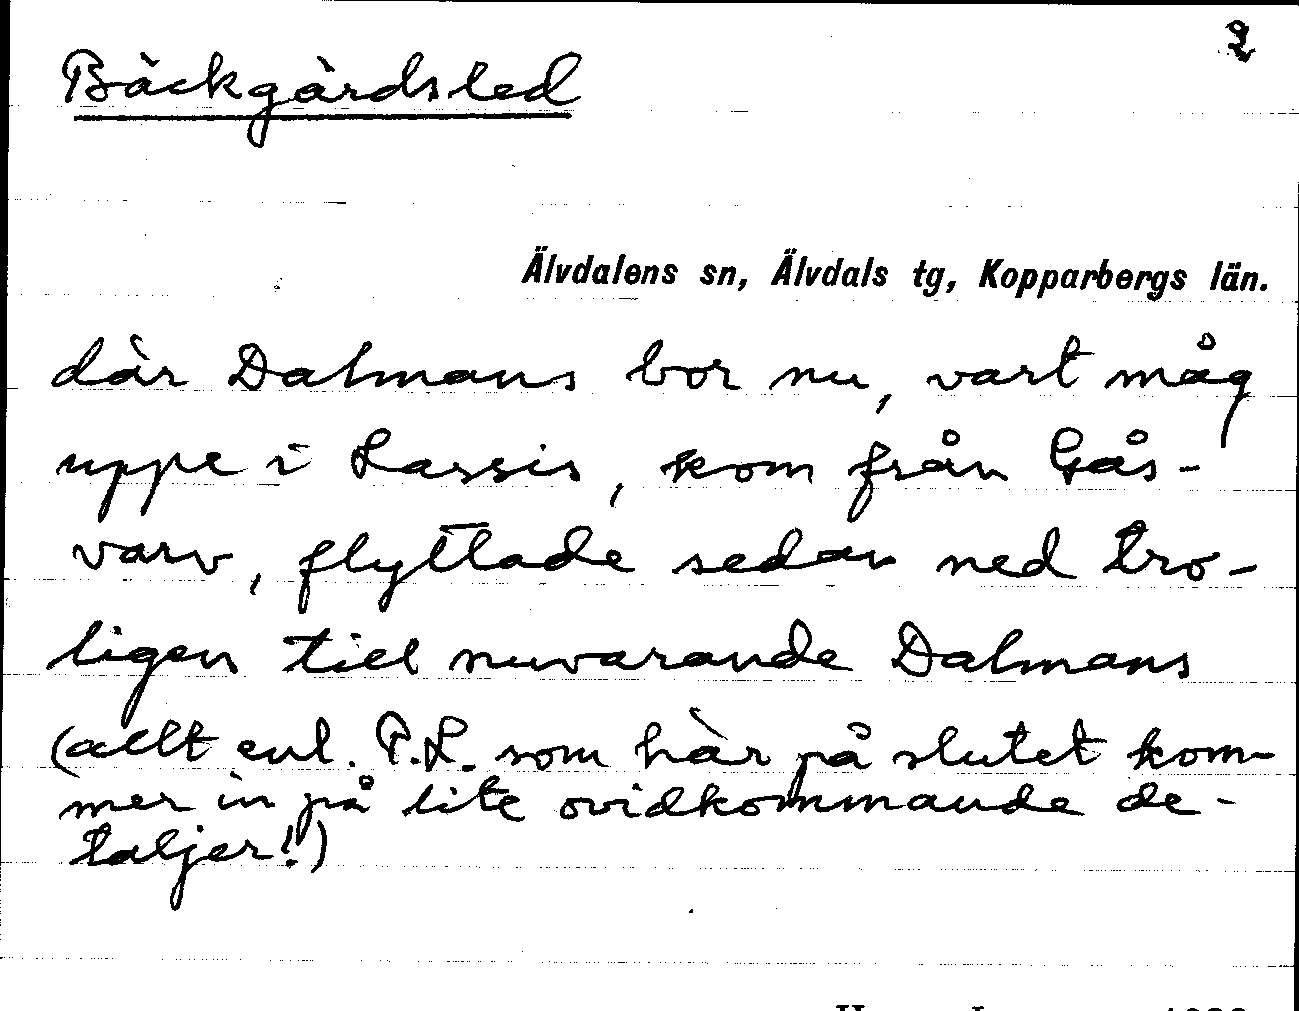 2
Bäckgårdsled
Älvdalens sn, Älvdals tg, Kopparbergs län.
där Dahmans bor nu, vart måg
uppe i Lassis, kom från Gås-
varv, flyttade sedan ned tro-
ligen till nuvarande Dahmans
(allt enl. P.L. som här på slutet kom-
mer in på lite ovidkommande de-
taljer!)